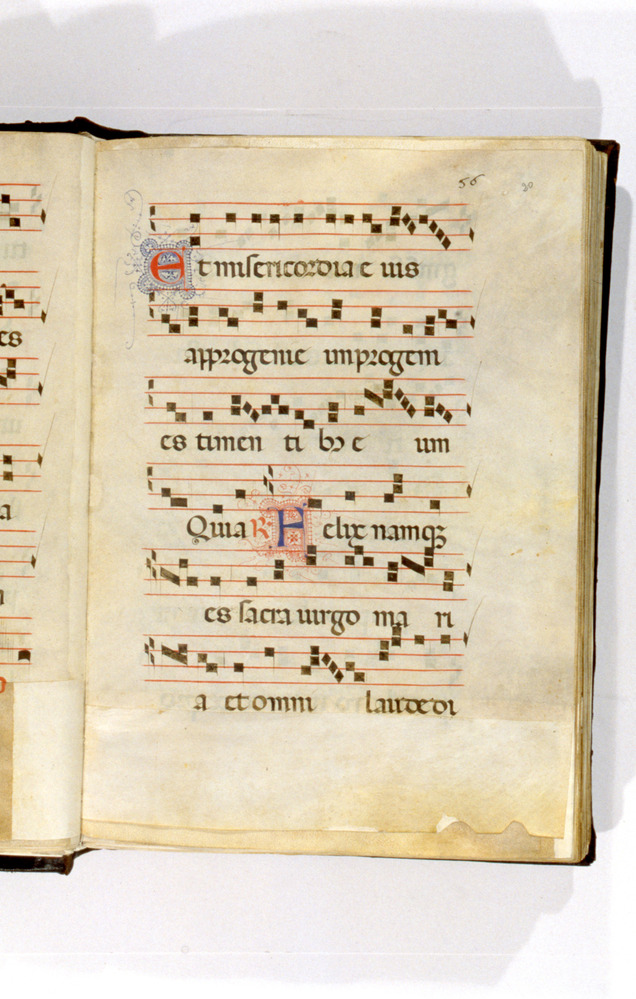 56 20
Et misericordia e ius
a pprogenie in progeni
es timen ti b͡z e um
Quia R Felix namqꝫ
es sacra uirgo ma ri
a et omni laude di
es
a